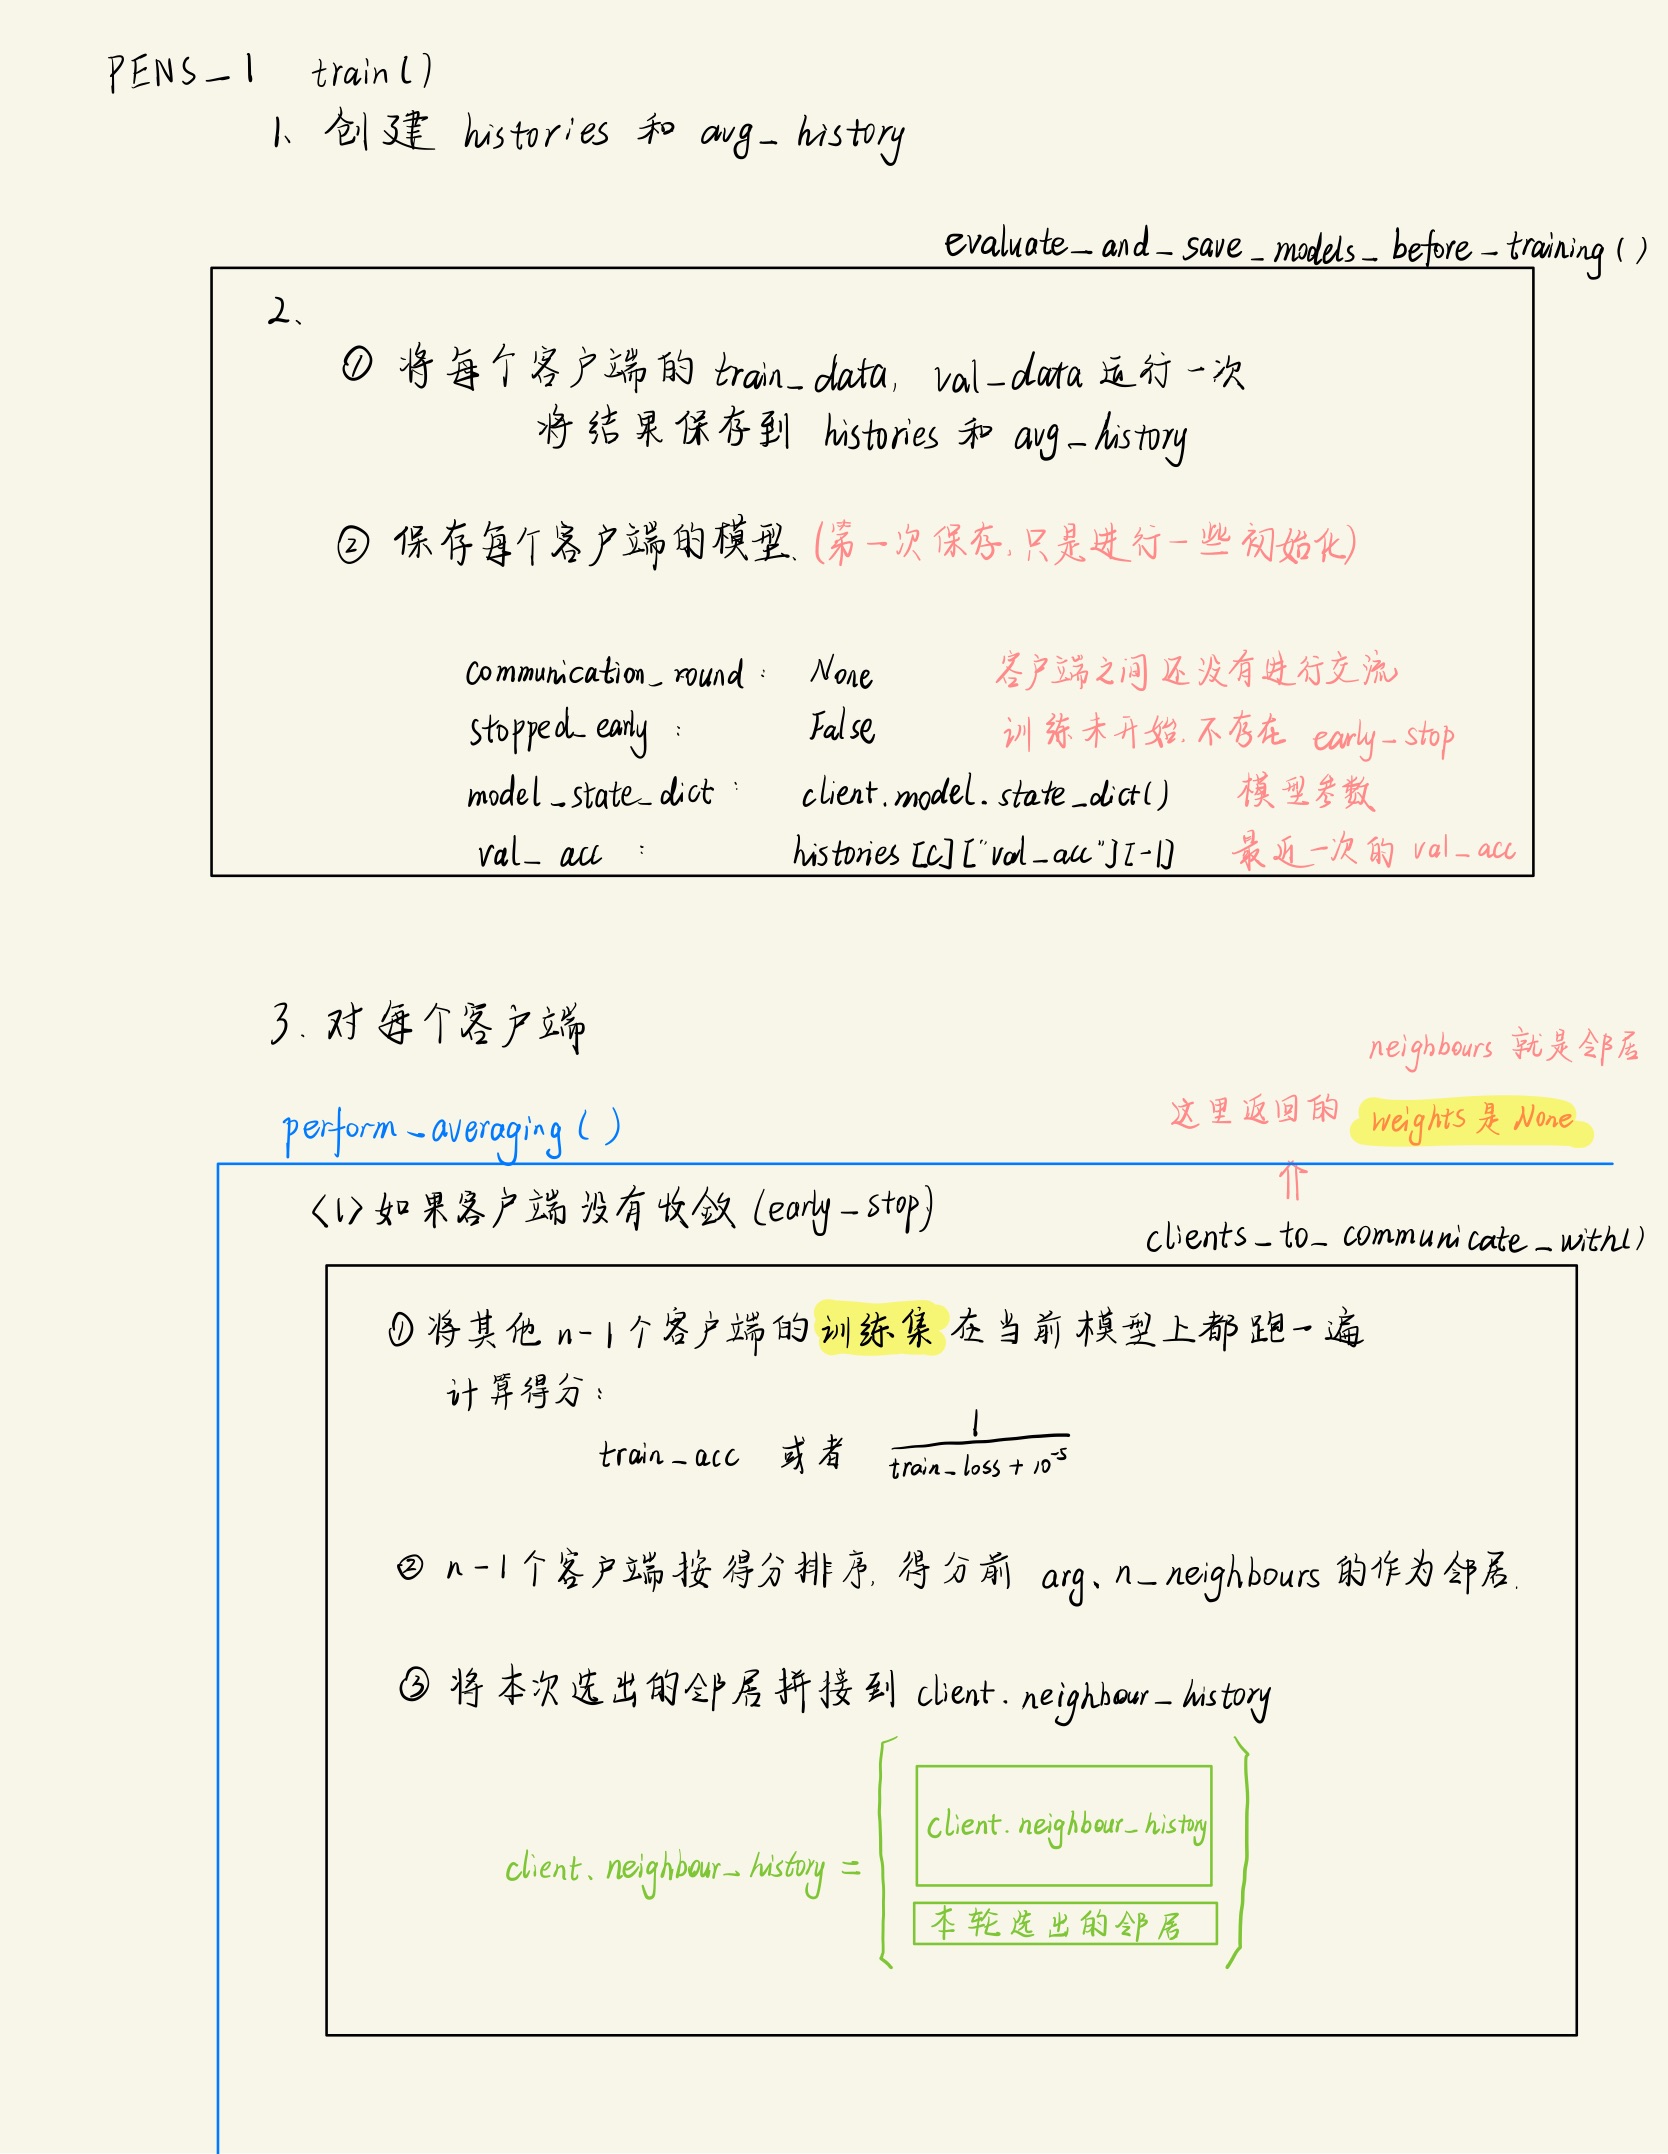 PENS_1 train()
1、创建 histories 和 avg_history
evaluate_and_save_models_before_training()
2、
① 将每个客户端的 train_data, val_data 运行一次
将结果保存到 histories 和 avg_history
② 保存每个客户端的模型. (第一次保存,只是进行一些初始化)
communication_round : None 客户端之间还没有进行交流
stopped_early : False 训练未开始.不存在 early_stop
model_state_dict : client.model.state_dict() 模型参数
val_acc : histories[c]["val_acc"][-1] 最近一次的 val_acc
3. 对每个客户端
neighbours 就是邻居
perform_averaging()
这里返回的 weights 是 None
⇑
<1> 如果客户端没有收敛 (early_stop)
clients_to_communicate_with()
① 将其他 n-1 个客户端的训练集在当前模型上都跑一遍
计算得分:
train_acc 或者 1/(train_loss + 10^-5)
② n-1个客户端按得分排序, 得分前 arg、n_neighbours 的作为邻居.
③ 将本次选出的邻居拼接到 client.neighbour_history
client.neighbour_history
client、neighbour_history =
本轮选出的邻居